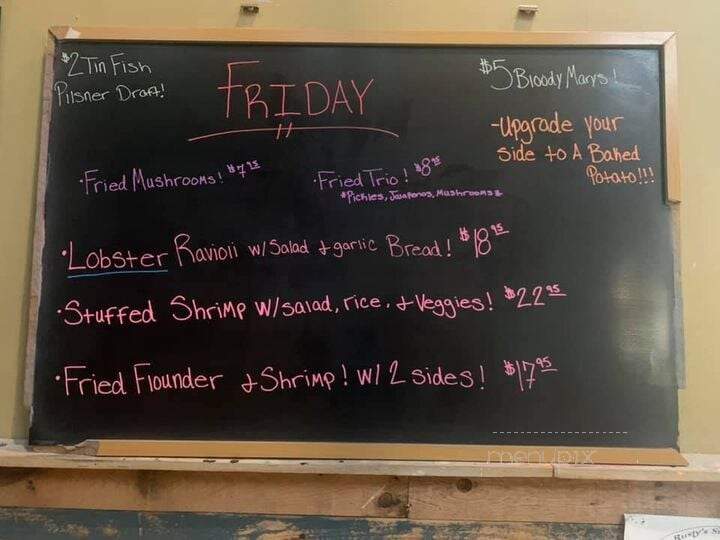 $2 Tin Fish
Pilsner Draft!
FRIDAY
$5 Bloody Marys!
-Upgrade your
side to A Baked
Potato!!!
·Fried Mushrooms! $7.95
·Fried Trio! $8.95
*Pickles, Jalapenos, Mushrooms*
·Lobster Ravioli w/ Salad + garlic Bread! $18.95
·Stuffed Shrimp w/ salad, rice, + Veggies! $22.95
·Fried Flounder + Shrimp! w/ 2 sides! $17.95
menupix
Rusty's